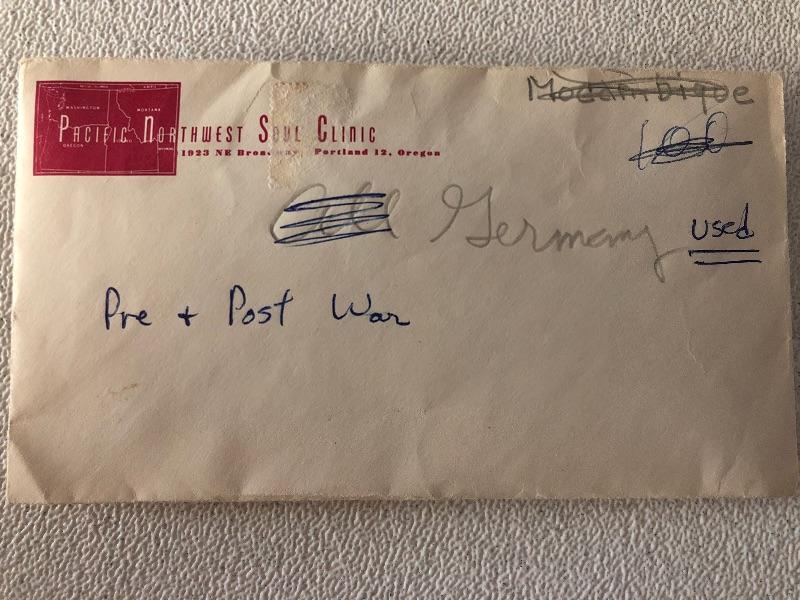 Mocambique
WASHINGTON
MONTANA
PACIFIC NORTHWEST SOUL CLINIC
OREGON
1923 NE Broadway, Portland 12, Oregon
100
All Germany used
Pre + Post War